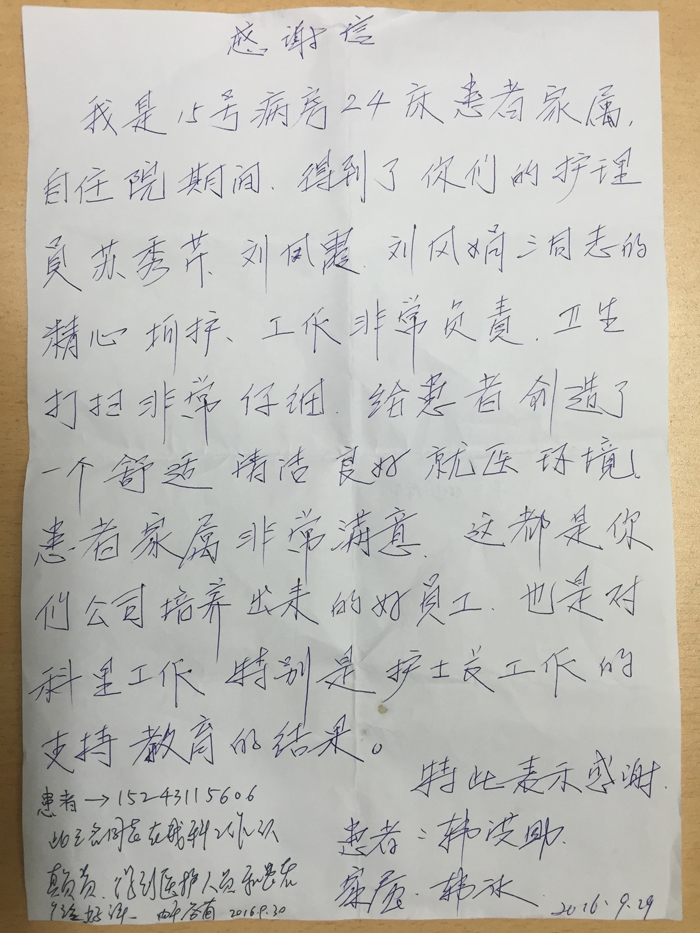 感谢信
我是15号病房24床患者家属,
自住院期间.得到了你们的护理
员苏秀芹、刘凤霞、刘凤娟三同志的
精心护、工作非常负责.卫生
打扫非常仔细.给患者创造了
一个舒适清洁良好就医环境、
患者家属非常满意.这都是你
们公司培养出来的好员工.也是对
科里工作特别是护士长工作的
支持教育的结果。
特此表示感谢.
患者:韩洪
家属.韩冰
2016.9.29
患者→15243115606
此三名同志在我科工作认
真负责.得到医护人员和患者
好评 2016.9.30